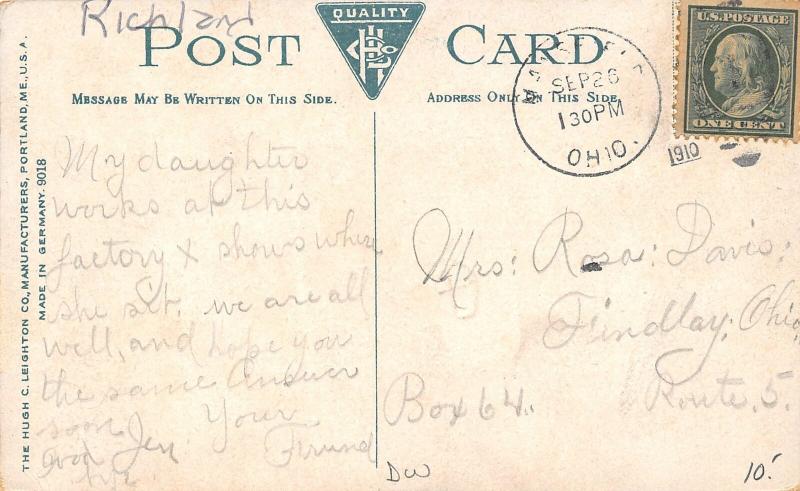 Richland
POST CARD
QUALITY
MESSAGE MAY BE WRITTEN ON THIS SIDE.
ADDRESS ONLY ON THIS SIDE
SEP 26
1 30 PM
OHIO.
1910
U.S. POSTAGE
ONE CENT
THE HUGH C. LEIGHTON CO., MANUFACTURERS, PORTLAND, ME., U.S.A.
MADE IN GERMANY. 9018
My daughter
works at this
factory X shows where
she sit. we are all
well, and hope you
the same Answer
soon Your
Friend
Mrs: Rosa: Davis:
Findlay, Ohio,
Route, 5.
Box 64.
DW
10.